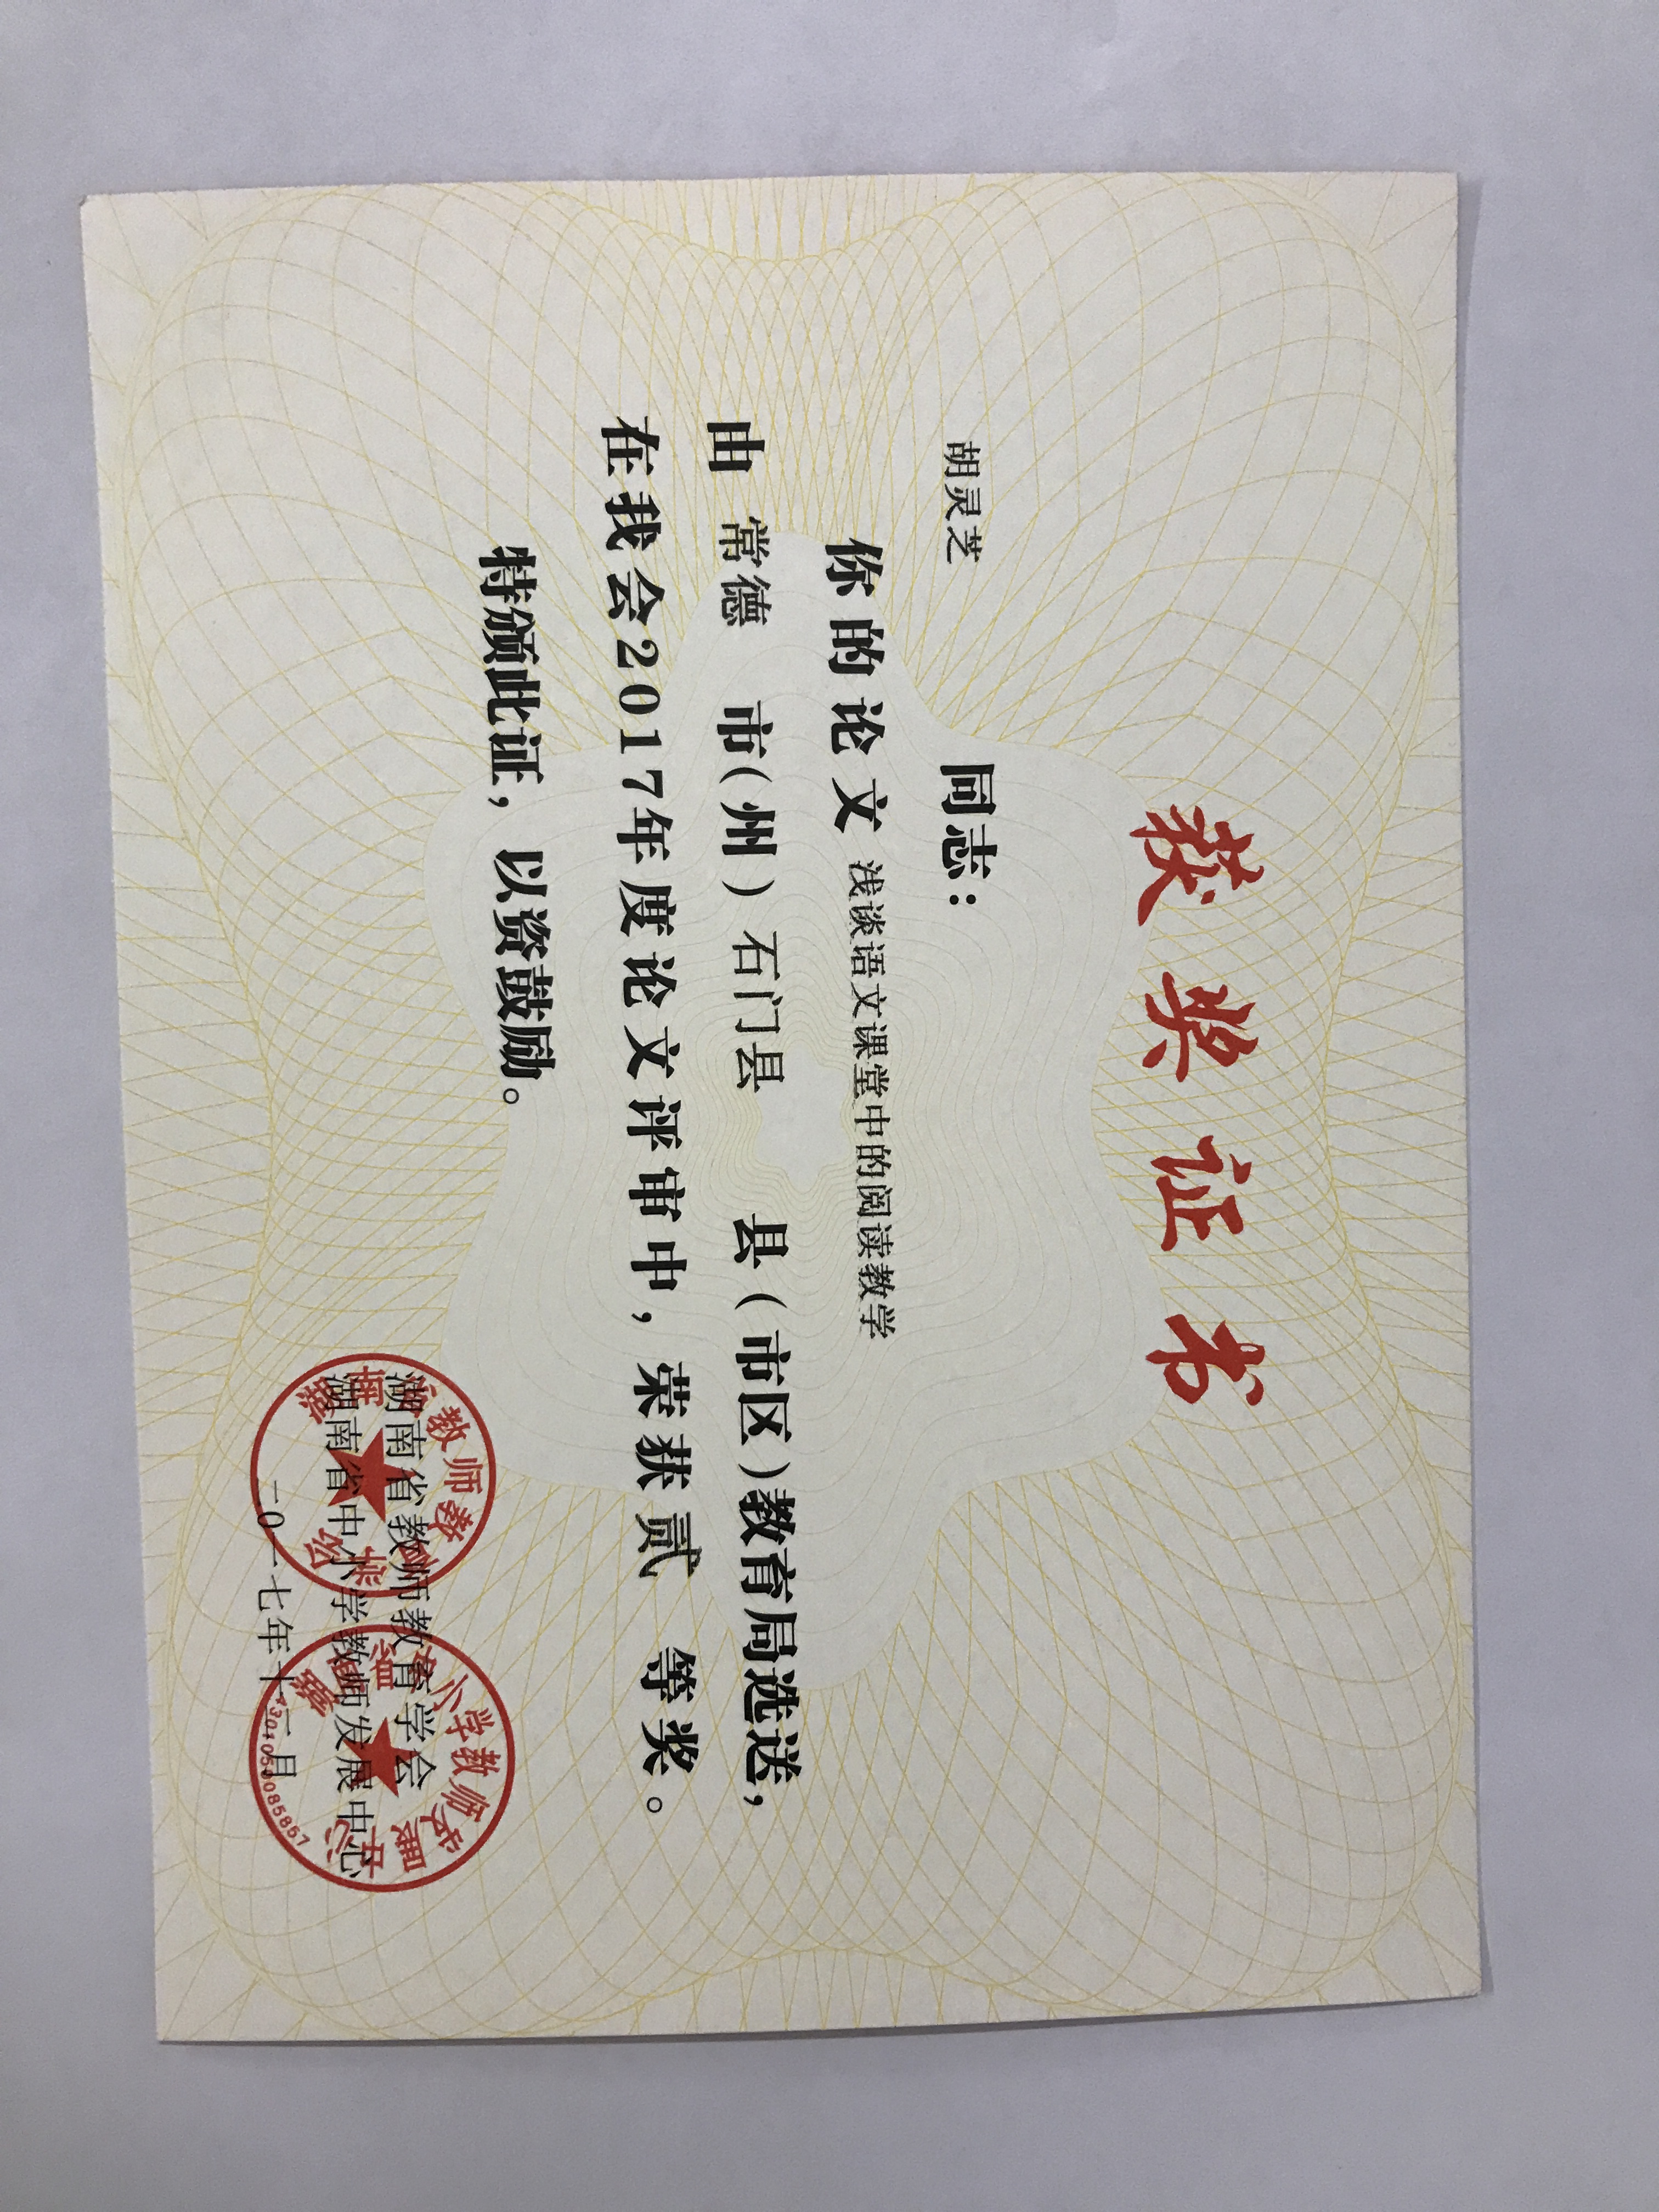 获奖证书
胡灵芝 同志：
你的论文 浅谈语文课堂中的阅读教学
由 常德 市（州）石门县 县（市区）教育局选送，
在我会2017年度论文评审中，荣获贰 等奖。
特颁此证，以资鼓励。
湖南省教师教育学会
湖南省中小学教师发展中心
二0一七年十二月